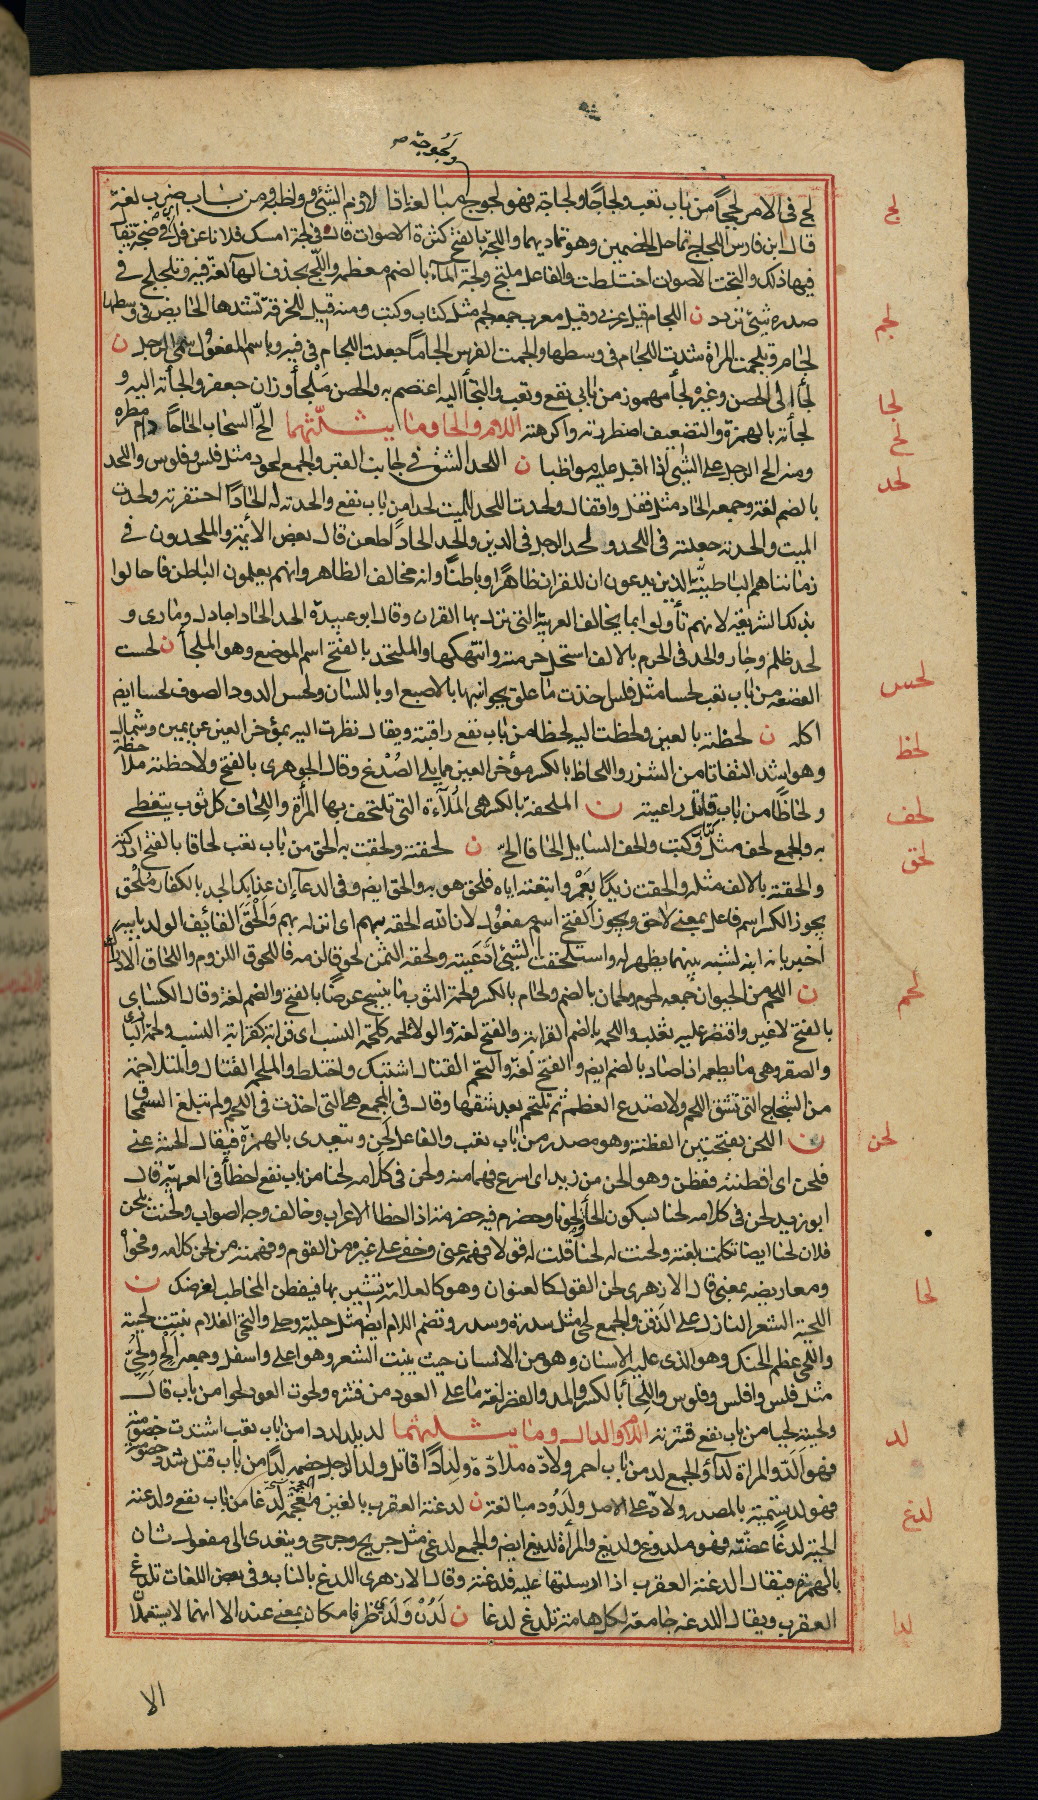 ولجوجة
لج في الامر لججاً من باب تعب ولجاجًا ولجاجة فهو لجوج مبالغة اذا لازم الشيئ وواظبه ومن باب ضرب لغة
قال ابن فارس اللجاج تماحك الخصمين وهو تماديهما واللجة بالفتح كثرة الاصوات قال في لجة امسك فلانا عن فل اي في ضجة يقال
فيها ذلك والتجت الاصوات اختلطت والفاعل ملتج ولجة المآء بالضم معظمه واللج بحذف الهآ لغة فيه وتلجلج في
صدره شيئ تردد ن اللجام قيل عربي وقيل معرب جمعه لجم مثل كتاب وكتب ومنه قيل للخرقة تشدها الحائض في وسطها
لجام وتلجمت المراة شدت اللجام في وسطها والجمت الفرس الجامًا جعلت اللجام في فيه وباسم المفعول سمي الرجل ن
لجأ الى الحصن وغيره لجأ مهموز من بابي نفع وتعب والتجأ اليه اعتصم به والحصن مَلْجأ وزان جعفر والجأته اليه و
لجأته بالهمزة والتضعيف اضطررته واكرهته اللام والحا وما يثلثهما الحّ السحاب الحاحًا دام مطره
ومنه الح الرجل على الشيئ اذا اقبل عليه مواظبا ن اللحد الشق في جانب القبر والجمع لحود مثل فلس وفلوس واللحد
بالضم لغة وجمعه الحاد مثل قفل واقفال ولحدت اللحد للميت لحدا من باب نفع والحدته له الحادًا احتفرته ولحدت
الميت والحدته جعلته في اللحد ولحد الرجل في الدين والحد الحادًا طعن قال بعض الائمة والملحدون في
زماننا هم الباطنية الذين يدعون ان للقران ظاهرًا وباطنًا وانهم يعلمون الباطن فاحالوا
بذلك الشريعة لانهم تأولوا بما يخالف العربية التي نزل بها القران وقال ابو عبيدة الحد الحادا جادل ومارى و
لحد ظلم وجار والحد في الحرم بالالف استحل حرمته وانتهكها والملتحد بالفتح اسم الموضع وهو الملجأ ن لحست
القصعة من باب تعب لحسا مثل فلس اخذت ما علق بجوانبها بالاصبع او باللسان ولحس الدود الصوف لحسا ايض
اكله ن لحظته بالعين ولحظت اليه لحظا من باب نفع راقبته ويقال نظرت اليه بمؤخر العين عن يمين وشمال
وهو اشد التفاتا من الشزر واللحاظ بالكسر مؤخر العين مما يلي الصُدْغ وقال الجوهري بالفتح ولاحظته ملاحظة
ولحاظًا من باب قاتل راعيته ن الملحفة بالكسر هي المُلآءة التي تلتحف بها المرأة واللحاف كل ثوب يتغطى
به والجمع لحف مثل كتاب وكتب والحف السايل الحافا الحّ ن لحقته ولحقت به الحق من باب تعب لحاقا بالفتح ادركته
والحقته بالالف مثله والحقت زيدًا بعَمْرو اتبعته اياه فلحق هو به والحق ايض وفي الدعآء ان عذابك الجد بالكفار مُلْحق
يجوز الكسر اسم فاعل بمعنى لاحق ويجوز الفتح اسم مفعول لان الله الحقه بهم اي انزله بهم وَالْحَقَ القائف الولد بابيه
اخبر بانه ابنه لشبه بينهما يظهر له واستلحقت الشيئ ادَّعيته ولحقه الثمن لحوقا لزمه فاللحوق اللزوم واللحاق الادراك
ن اللحم من الحيوان جمعه لحوم ولحمان بالضم ولحام بالكسر ولحمة الثوب ما ينسج عرضًا بالفتح والضم لغة وقال الكسائي
بالفتح لا غير واقتصر عليه ثعلب واللحمة بالضم القرابة والفتح لغة والولا لحمة كلحمة النسب اي قرابة كقرابة النسب ولحمة البازي
والصقر وهي ما يطعمه اذا صاد بالضم ايض والفتح لغة والتحم القتال اشتبك واختلط والملحمة القتال والمتلاحمة
من الشجاج التي تشق اللحم ولا تصدع العظم ثم تلتحم بعد شقها وقال في المجمع هي التي اخذت في اللحم ولم تبلغ السمحاق
ن اللحن بفتحتين الفطنة وهو مصدر من باب تعب والفاعل لَحِن ويتعدى بالهمزة فيقال الحنته عني
فلحن اي افطنته ففطن وهو الحن من زيد اي اسرع فهما منه ولحن في كلامه لحنا من باب نفع اخطأ في العربية قال
ابو زيد لحن في كلامه لحنا بسكون الحآ ولحونا وحضرم فيه حضرمة اذا اخطا الاعراب وخالف وجه الصواب ولحنت بلحن
فلان لحنا ايضا تكلمت بلغته ولحنت له لحنًا قلت له قولا فهمه عني وخفي على غيره من القوم وفهمته من لحن كلامه وفحواه
ومعاريضه بمعنى قال الازهري لحن القول كالعنوان وهو كالعلامة تشير بها فيفطن المخاطب لغرضك ن
اللحية الشعر النازل على الذقن والجمع لحي مثل سدرة وسدر وتضم اللام ايضا مثل حلية وحلي والتحى الغلام نبتت لحيته
واللحي عظم الحنك وهو الذي عليه الاسنان وهو من الانسان حيث ينبت الشعر وهو اعلى واسفل وجمعه اَلْحٍ ولُحِيّ
مثل فلس وافلس وفلوس واللحآء بالكسر والمد والقصر لغة ما على العود من قشره ولحوت العود لحوا من باب قال
ولحيته لحيا من باب نفع قشرته اللام والدال وما يثلثهما لد يلد لددا من باب تعب اشتدت خصومته
فهو اَلَدّ والمراة لدآء والجمع لد من باب احمر ولادّه ملادّة ولِدادًا قاتل ولد الرجل خصمه لدًا من باب قتل شدد خصومته
فهو لد تسمية بالمصدر ولادّ على الاصل ولَدُود مبالغة ن لدغته العقرب بالغين معجمة لَدْغا من باب نفع ولدغته
الحية لدغًا عضته فهو ملدوغ ولديغ والمرأة لديغ ايض والجمع لدغى مثل جريح وجرحى ويتعدى الى مفعول ثان
بالهمزة فيقال الدغته العقرب اذا ارسلتها عليه فلدغته وقال الازهري اللدغ بالناب وفي بعض اللغات تلدغ
العقرب ويقال اللدغة جامعة لكل هامة تلدغ لدغا ن لَدُنْ وَلَدَى ظرفا مكان بمعنى عند الا انهما لا يستعملان
لج
لجم
لجا
لح
لحد
لحس
لحظ
لحف
لحق
لحم
لحن
لحا
لد
لدغ
لدا
الا